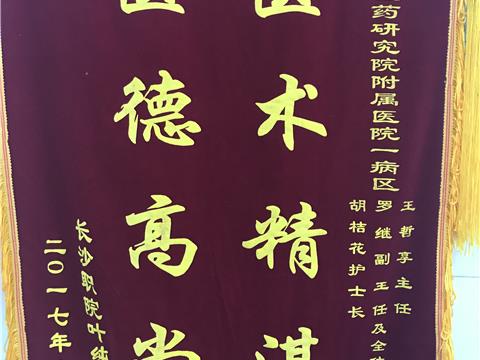 药研究院附属医院一病区
王哲享主任
罗继副主任及全
胡桔花护士长
医术精湛
医德高尚
长沙职院叶纯
二〇一七年